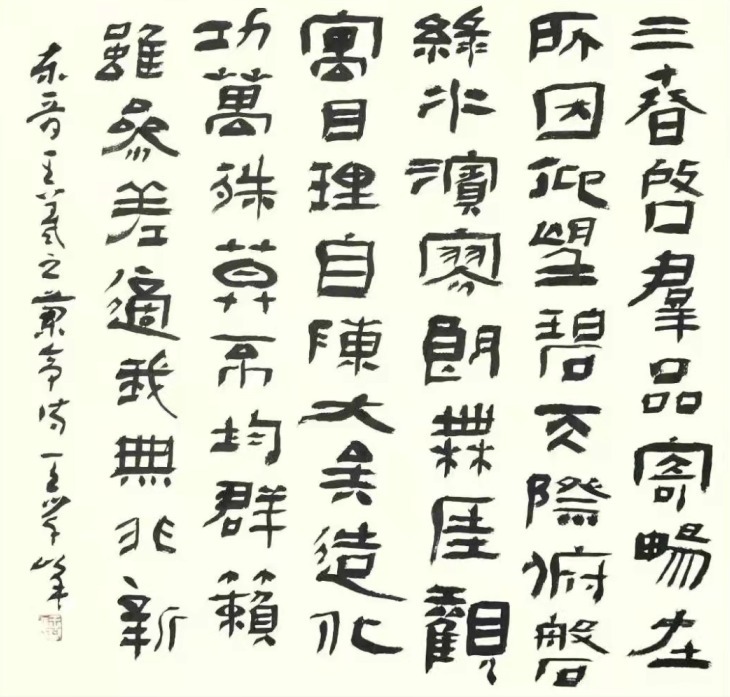 三春啓羣品寄暢在
所因仰望碧天際俯磐
綠水濱寥朗無涯觀
寓目理自陳大矣造化
功萬殊莫不均群籟
雖參差適我無非新
東晉王羲之蘭亭詩 王学